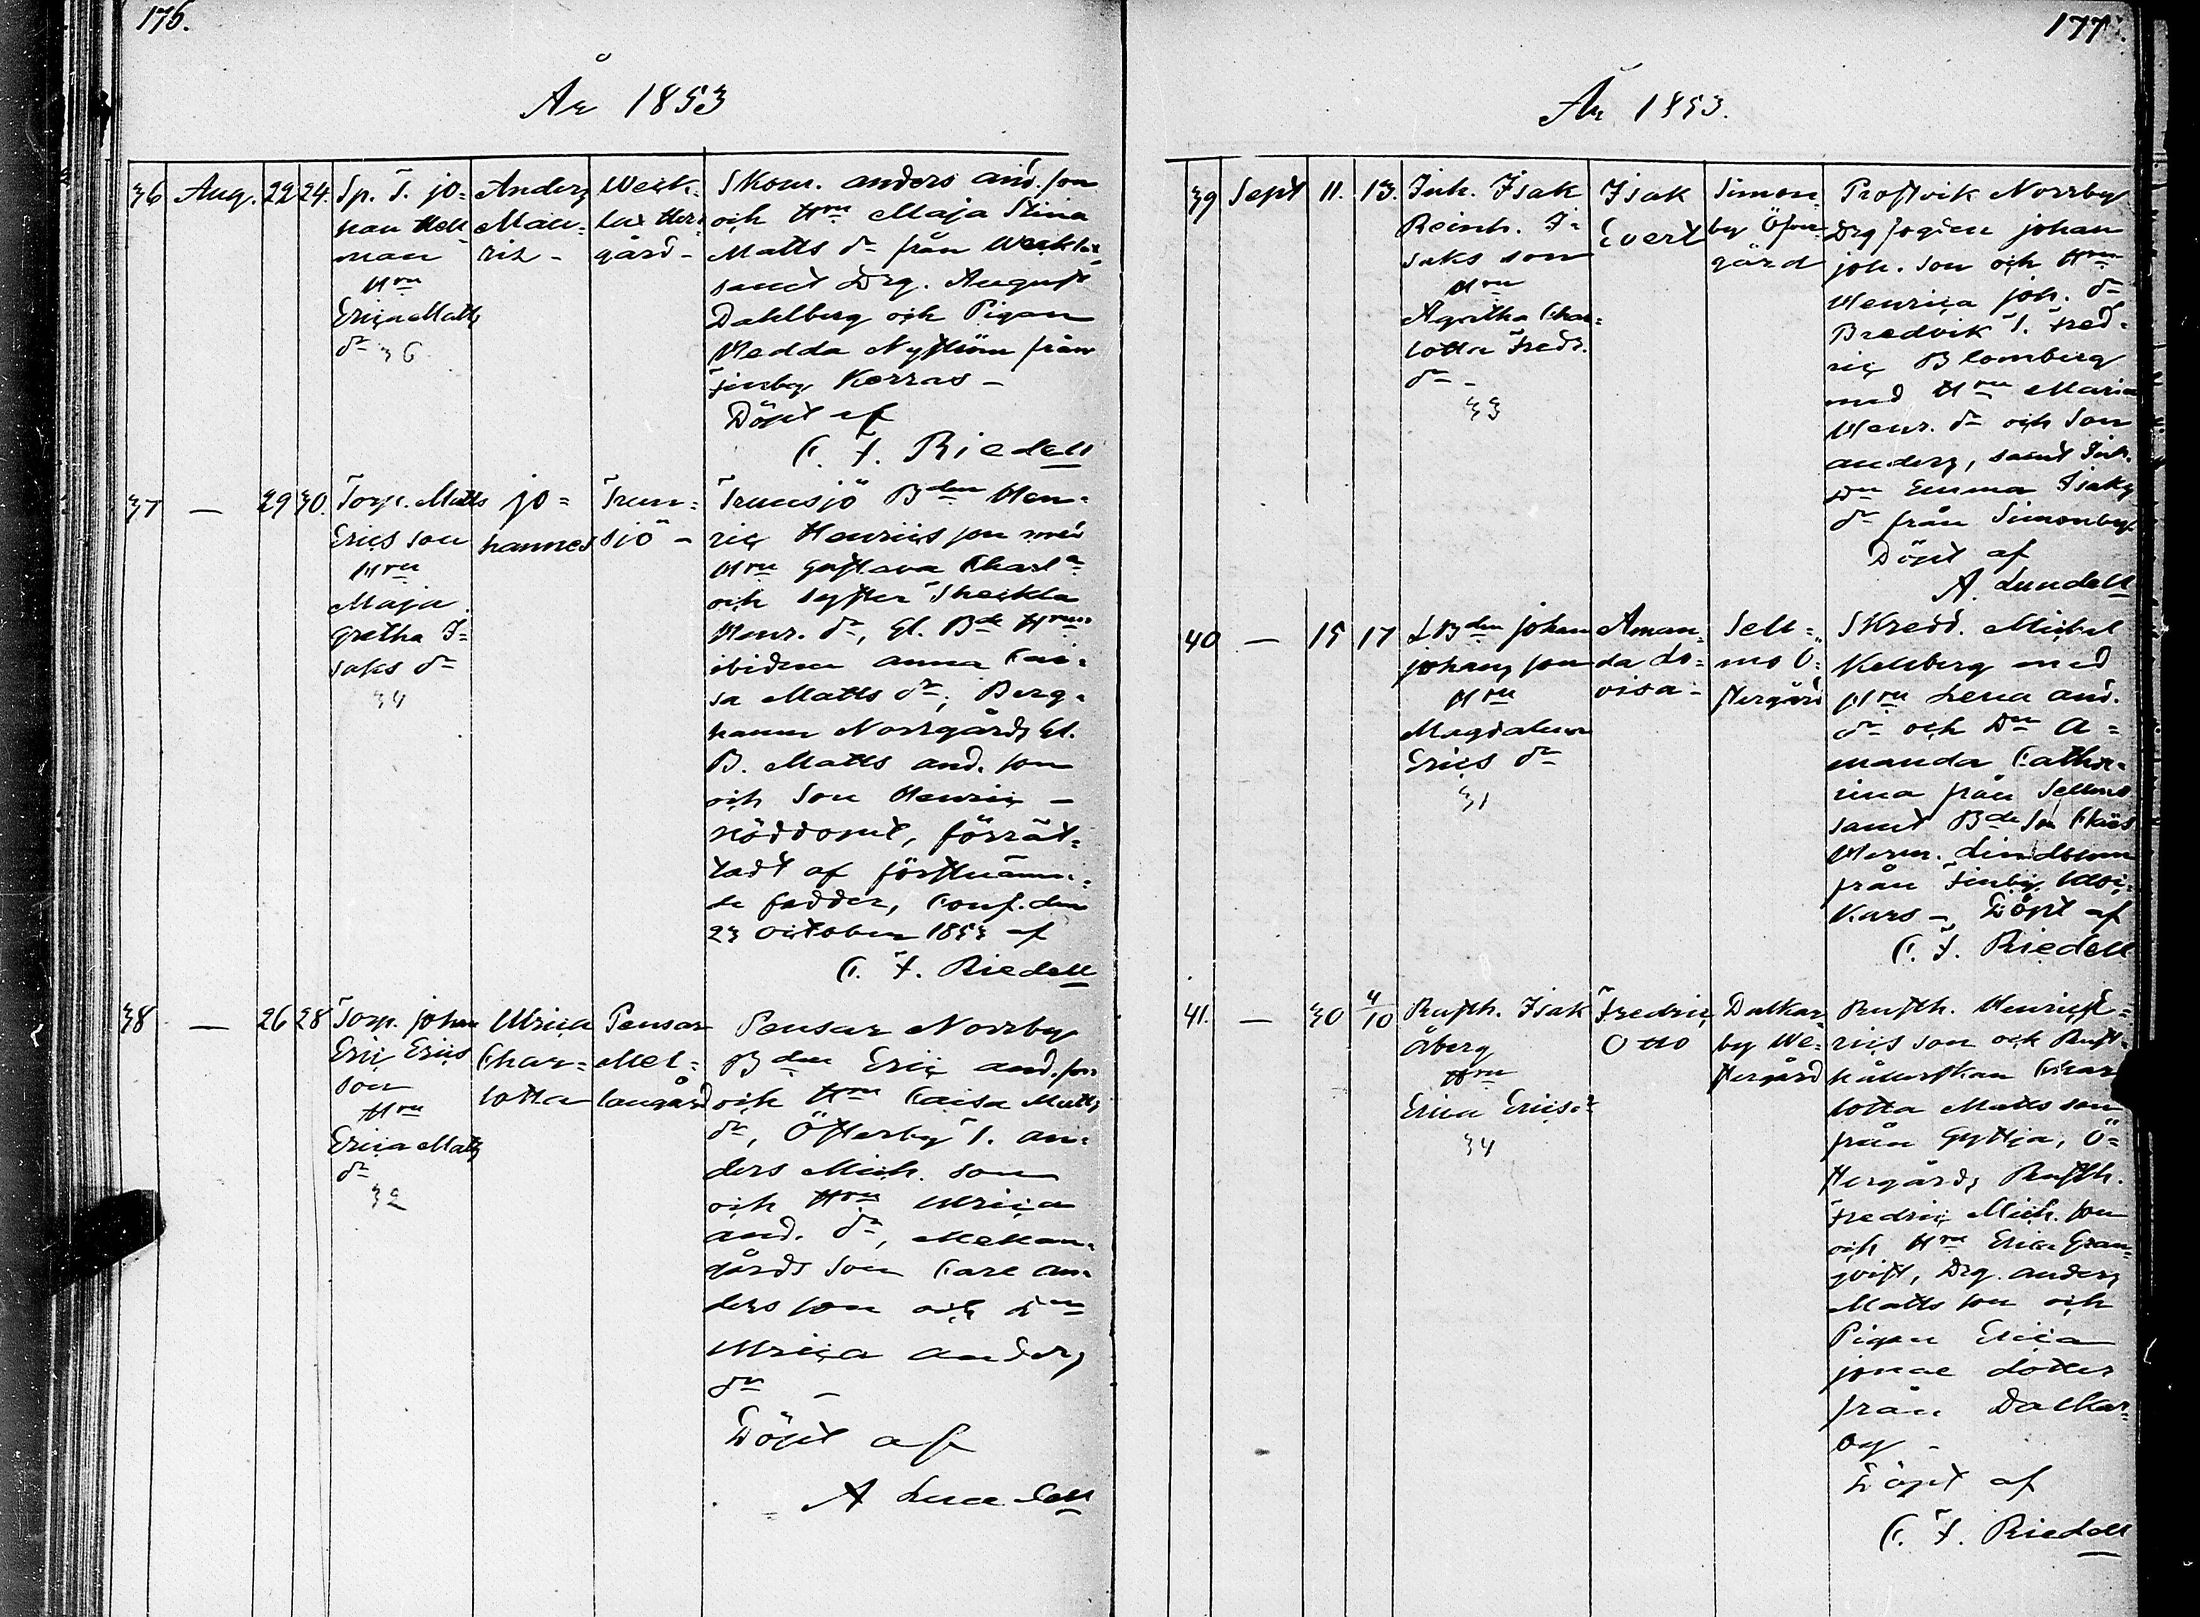 176.
År 1853
36 Aug. 22 24. Sp. T. jo=
han Hell=
man
Hru
Erica Matts
dr 36
Anders
Mau=
ritz -
gård -
Skom. anders and. son
och Hru Maja Stina
Matts dr från
samt Drg. August
Dahlberg och Pigan
Hedda Nyström från
Finby Korras -
Döpt af
C. F. Riedell
37 — 29 30. Torp. Matts
Erics son
Hru
Maja
gretha I=
saks dr
34
jo=
hannes
Trun=
sjö -
Trunsjö Bden Hen=
ric Henrics son med
Hru gustava Charl a
och syster Theckla
Henr. dr, Gl. Bde Hru
ibidem anna Cai=
sa Matts dr, Berg=
hamn Norrgårds Gl.
B. Matts and. son
och Son Henric -
nöddopet, förrät=
tadt af förstnämn=
de fadder, Conf. den
23 October 1853 af
C. F. Riedell
38 — 26 28 Torp. johan
Eric Erics
son
Hru
Erica Matts
dr
32
Ulrica
Char=
lotta
Pensar
Mel=
langård
Pensar Norrby
Bden Eric and. son
och Hru Caisa Matts
dr, Österby T. an=
ders Mich. son
och Hru Ulrica
and. dr, Mellan=
gårds Son Carl an=
ders son och Dn
Ulrica anders
dr -
Döpt af
A Lundell
177.
År 1853.
39 Sept 11. 13. Inh. Isak
Reinh. I=
saks son
Hru
Agatha Char=
lotta Fredr.
dr -
33
Isak
Evert
Simon=
by Öfver
gård
Prostvik Norrby
Drg johan
joh. son och Hru
Henrica joh. dr
Bredvik T. Fred=
ric Blomberg
med Hru Maria
Henr. dr och Son
anders, samt Inh.
Dn Emma Isaks
dr från Simonby
Döpt af
A. Lundell
40 — 15 17 LBden johan
johans son
Hru
Magdalena
Erics dr
31
Aman=
da Lo=
visa -
Sell=
mo Ö=
stergård
Skredd. Michel
Kellberg med
Hru Lena and.
dr och Dn A=
manda Catha=
rina från Sellmo
samt Bde Son
Herm. Lindblom
från Finby
Kars - Döpt af
C. F. Riedell
41. — 30 4/10 Rusth. Isak
Åberg
Hru
Erica Erics dr
34
Fredric
Otto
Dalkar=
by We=
stergård
Rusth. Henric
rics son och Rust=
hållerskan Char
lotta Matts son
från Gyttja, Ö=
stergårds Rusth.
Fredric Mich. son
och Hru Erica Gran=
qvist, Drg. anders
Matts son och
Pigan Erica
jonae dotter
från Dalkar=
by -
Döpt af
C. F. Riedell